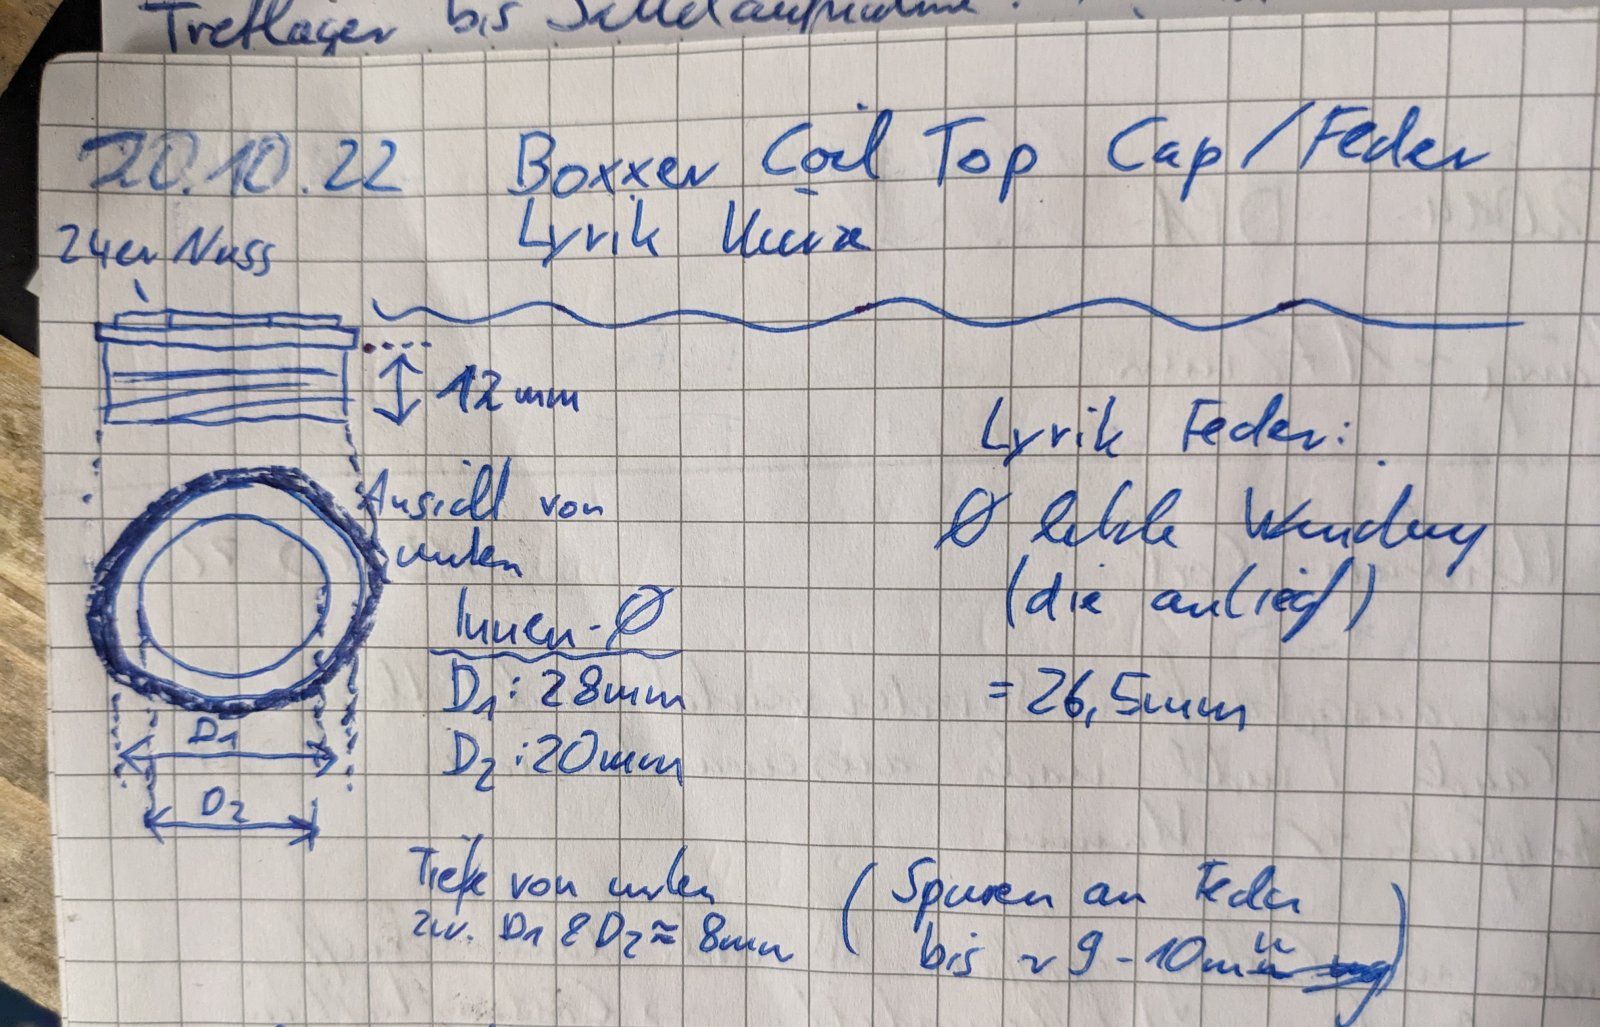 Tretlager bis Sattelaufnahme
20.10.22 Boxxer Coil Top Cap / Feder
Lyrik Kurz
24er Nuss
12mm
Lyrik Feder:
Ansicht von
unten
Ø letzte Windung
(die anliegt)
Innen-Ø
D1: 28mm
= 26,5mm
D2: 20mm
D1
D2
Tiefe von unten
zw. D1 & D2 ≈ 8mm
(Spuren an Feder
bis ~ 9-10mm)